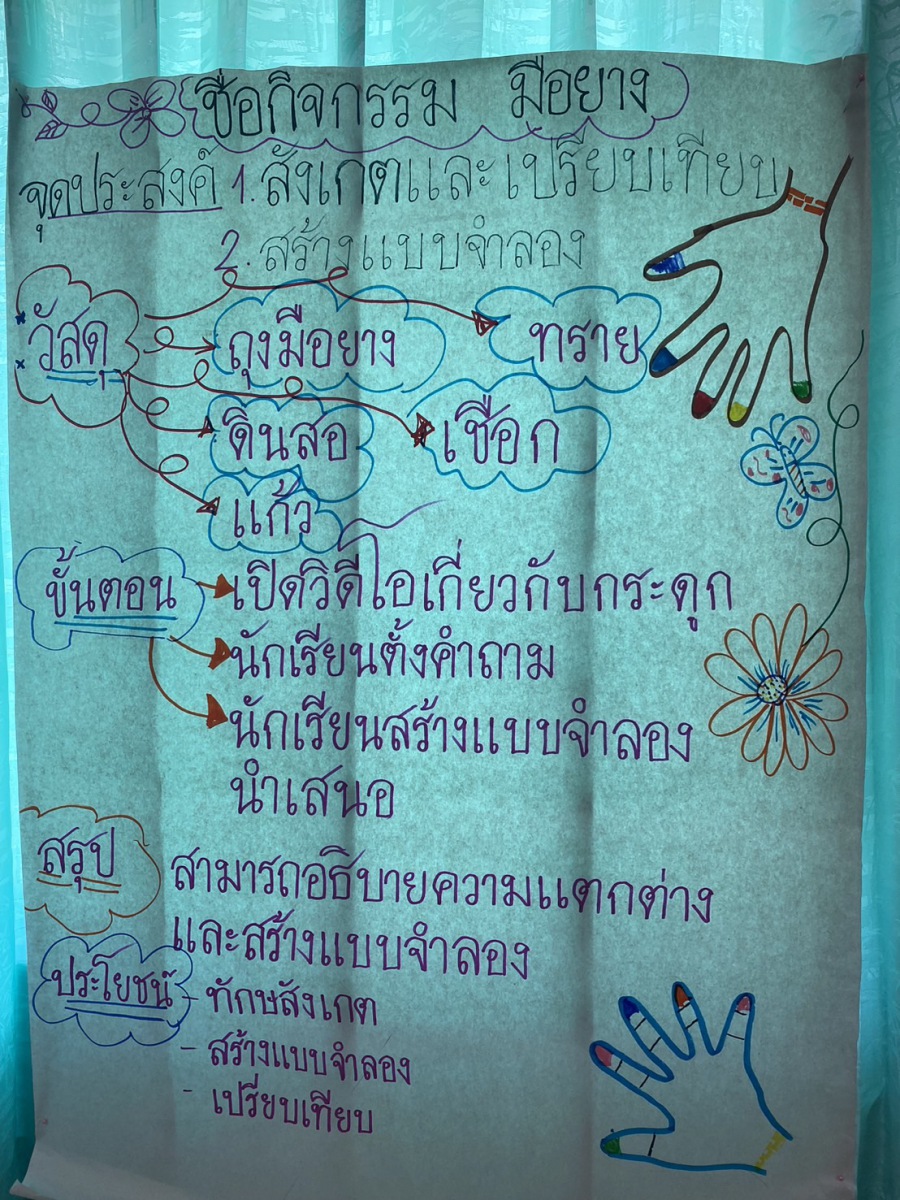 ชื่อกิจกรรม มือยาง
จุดประสงค์ 1. สังเกตและเปรียบเทียบ
2. สร้างแบบจำลอง
วัสดุ
ถุงมือยาง ทราย
ดินสอ เชือก
แก้ว
ขั้นตอน เปิดวิดีโอเกี่ยวกับกระดูก
นักเรียนตั้งคำถาม
นักเรียนสร้างแบบจำลอง
นำเสนอ
สรุป สามารถอธิบายความแตกต่าง
และสร้างแบบจำลอง
ประโยชน์ - ทักษสังเกต
- สร้างแบบจำลอง
- เปรียบเทียบ